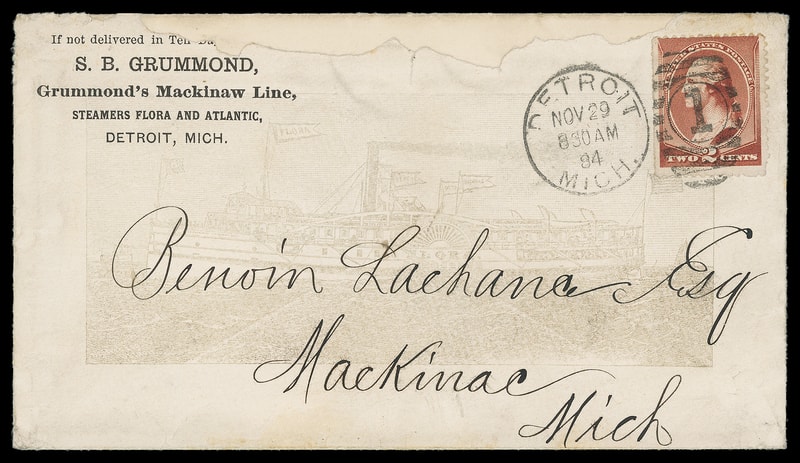 If not delivered in Ten Da
S. B. GRUMMOND,
Grummond's Mackinaw Line,
STEAMERS FLORA AND ATLANTIC,
DETROIT, MICH.
DETROIT
NOV 29
830AM
84
MICH.
UNITED STATES POSTAGE
1
TWO 2 CENTS
FLORA
Benoin Lachance Esq
Mackinac
Mich